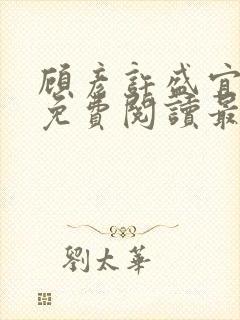 顧彥許盛宜
免費閱讀最
劉太華